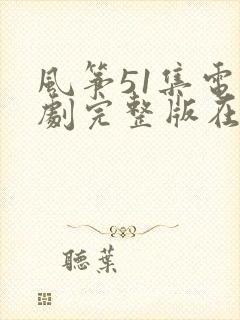 風箏51集電
劇完整版在
聽葉